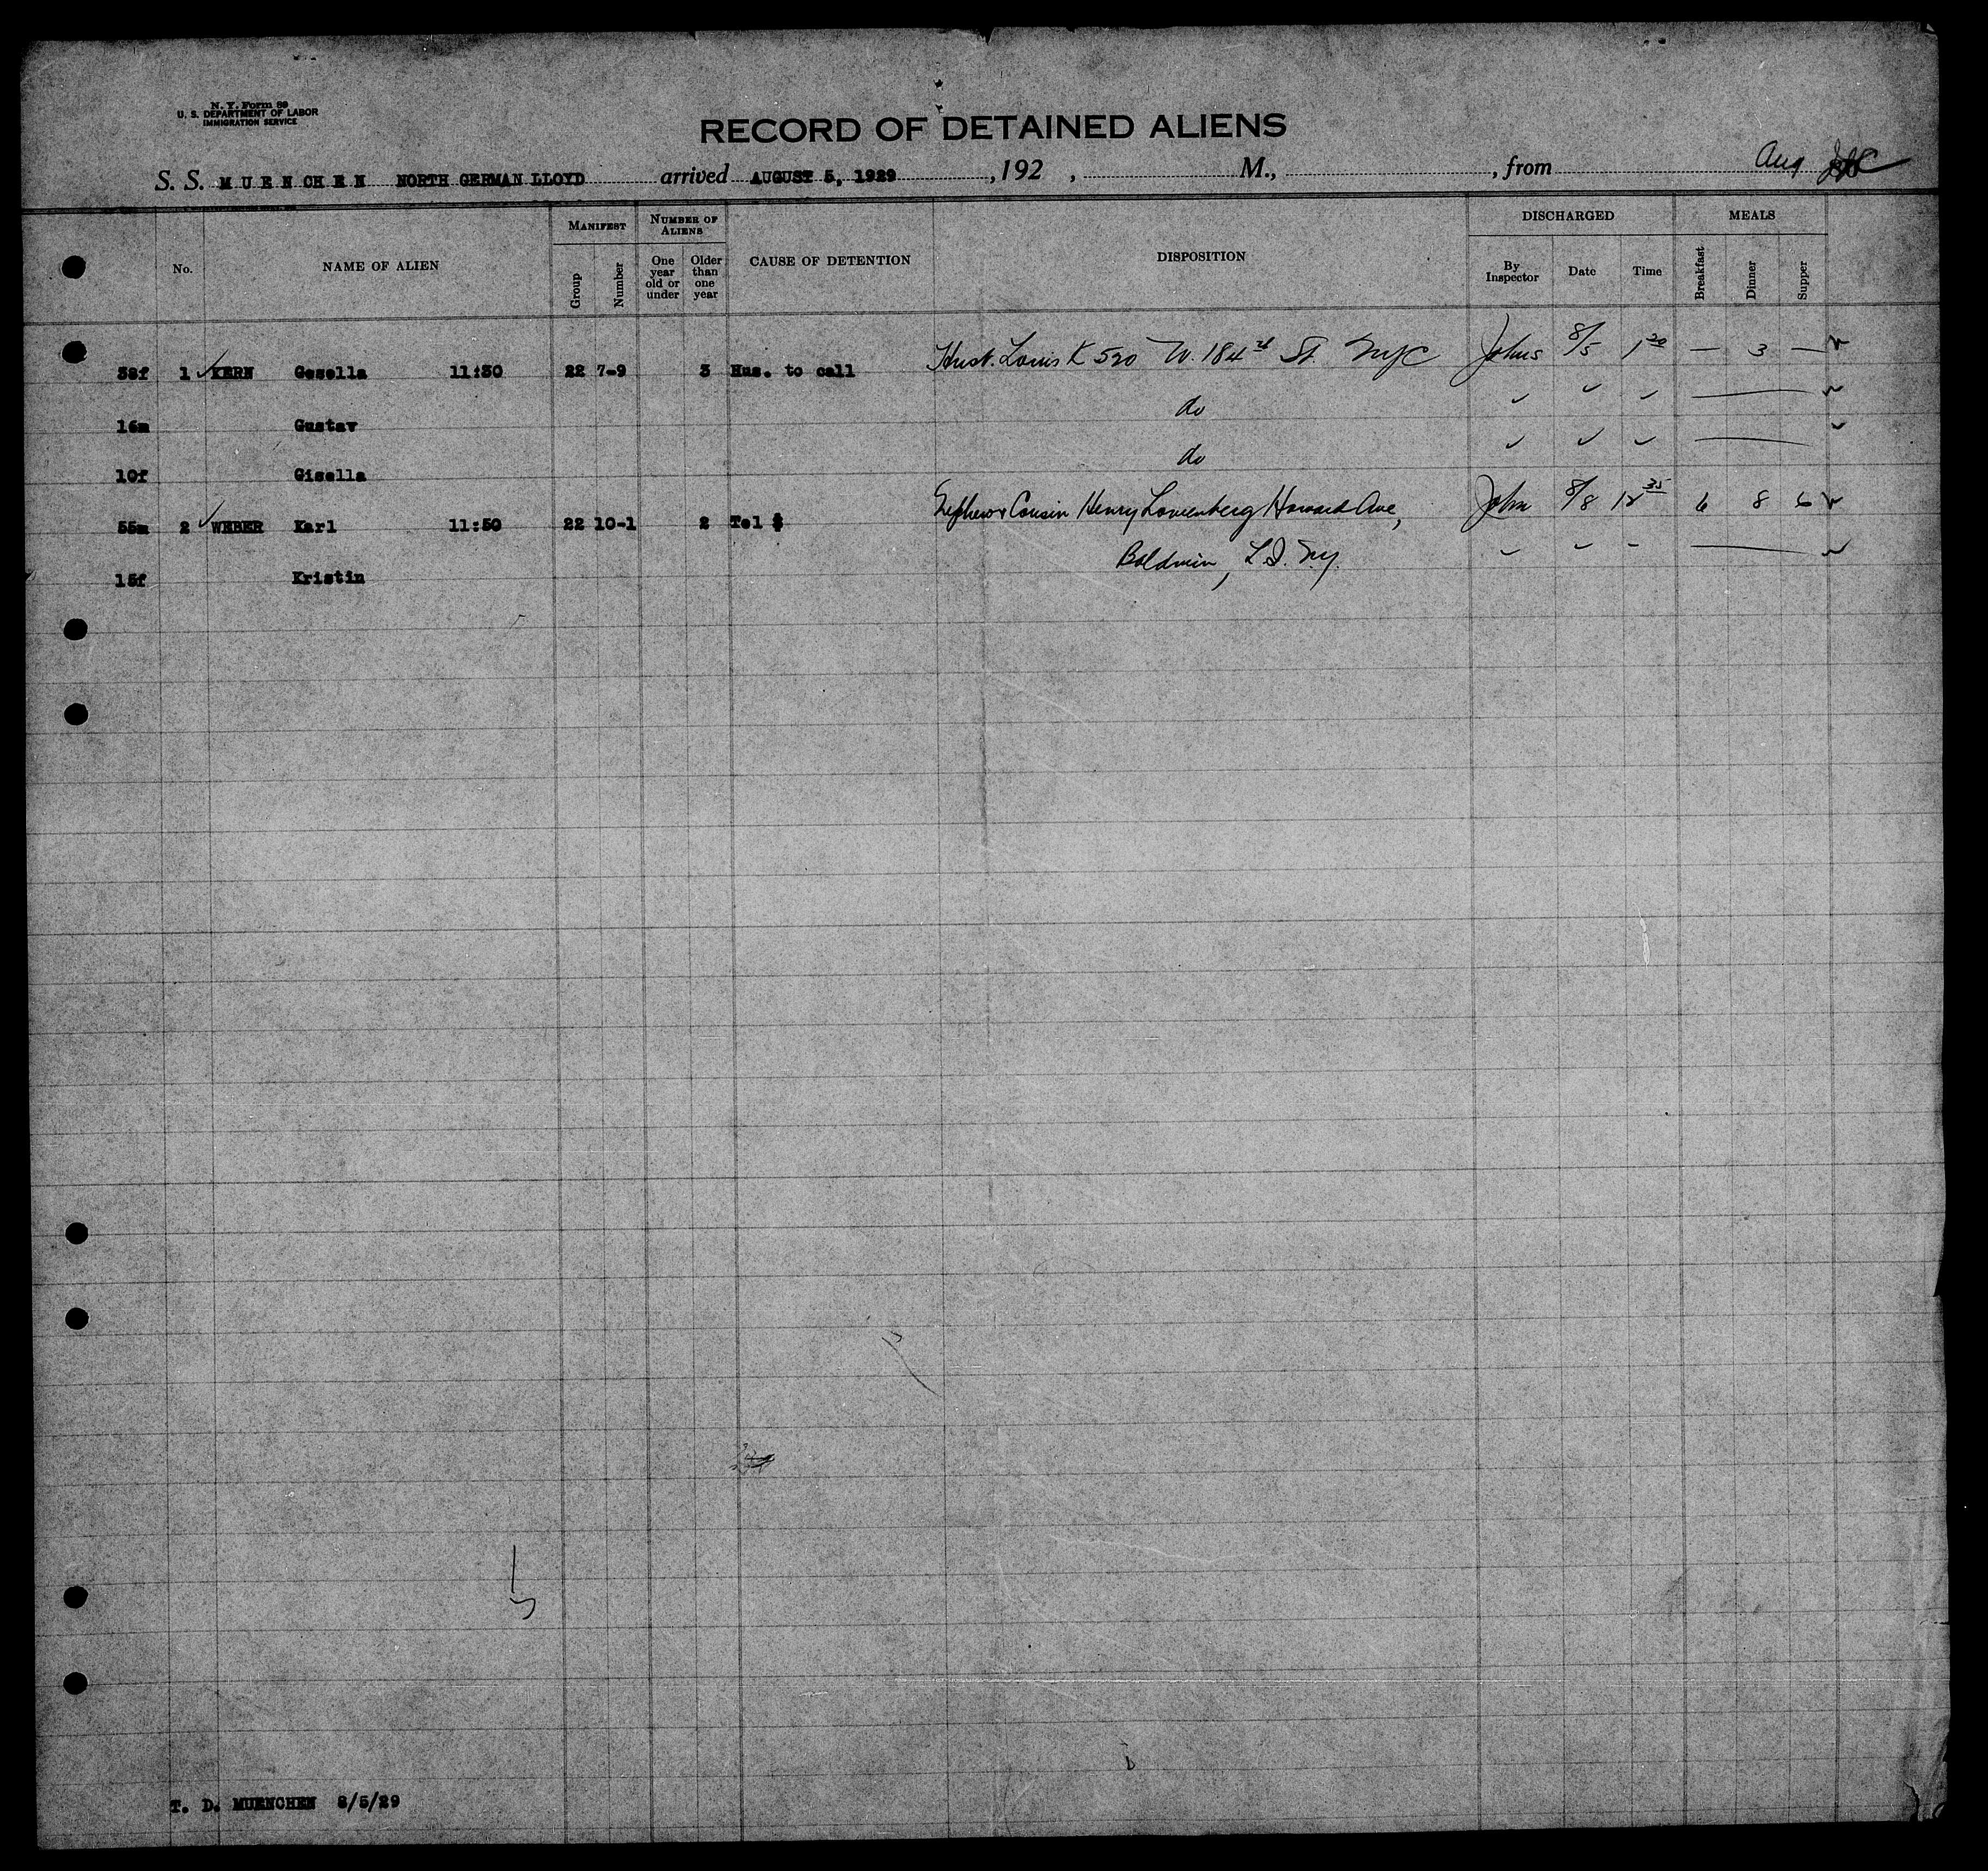 N. Y. Form 89
U. S. DEPARTMENT OF LABOR
IMMIGRATION SERVICE
RECORD OF DETAINED ALIENS
S. S. MUENCHEN NORTH GERMAN LLOYD arrived AUGUST 5, 1929, 192 , M., , from Aug
No. NAME OF ALIEN MANIFEST Group Number NUMBER OF ALIENS One year old or under Older than one year CAUSE OF DETENTION DISPOSITION DISCHARGED By Inspector Date Time MEALS Breakfast Dinner Supper
38f 1 KERN Gesella 11:30 22 7-9 3 Hus. to call Husb. Louis K 520 W. 184th St. NYC Johns 8/5 1 20 — 3 —
16m Gustav do
10f Gisella do
55m 2 WEBER Karl 11:50 22 10-1 2 Tel $ Nephew & Cousin Henry Howard Ave, John 8/8 12 35 6 8 6
15f Kristin Baldwin, L.I. N.Y.
T. D. MUENCHEN 8/5/29